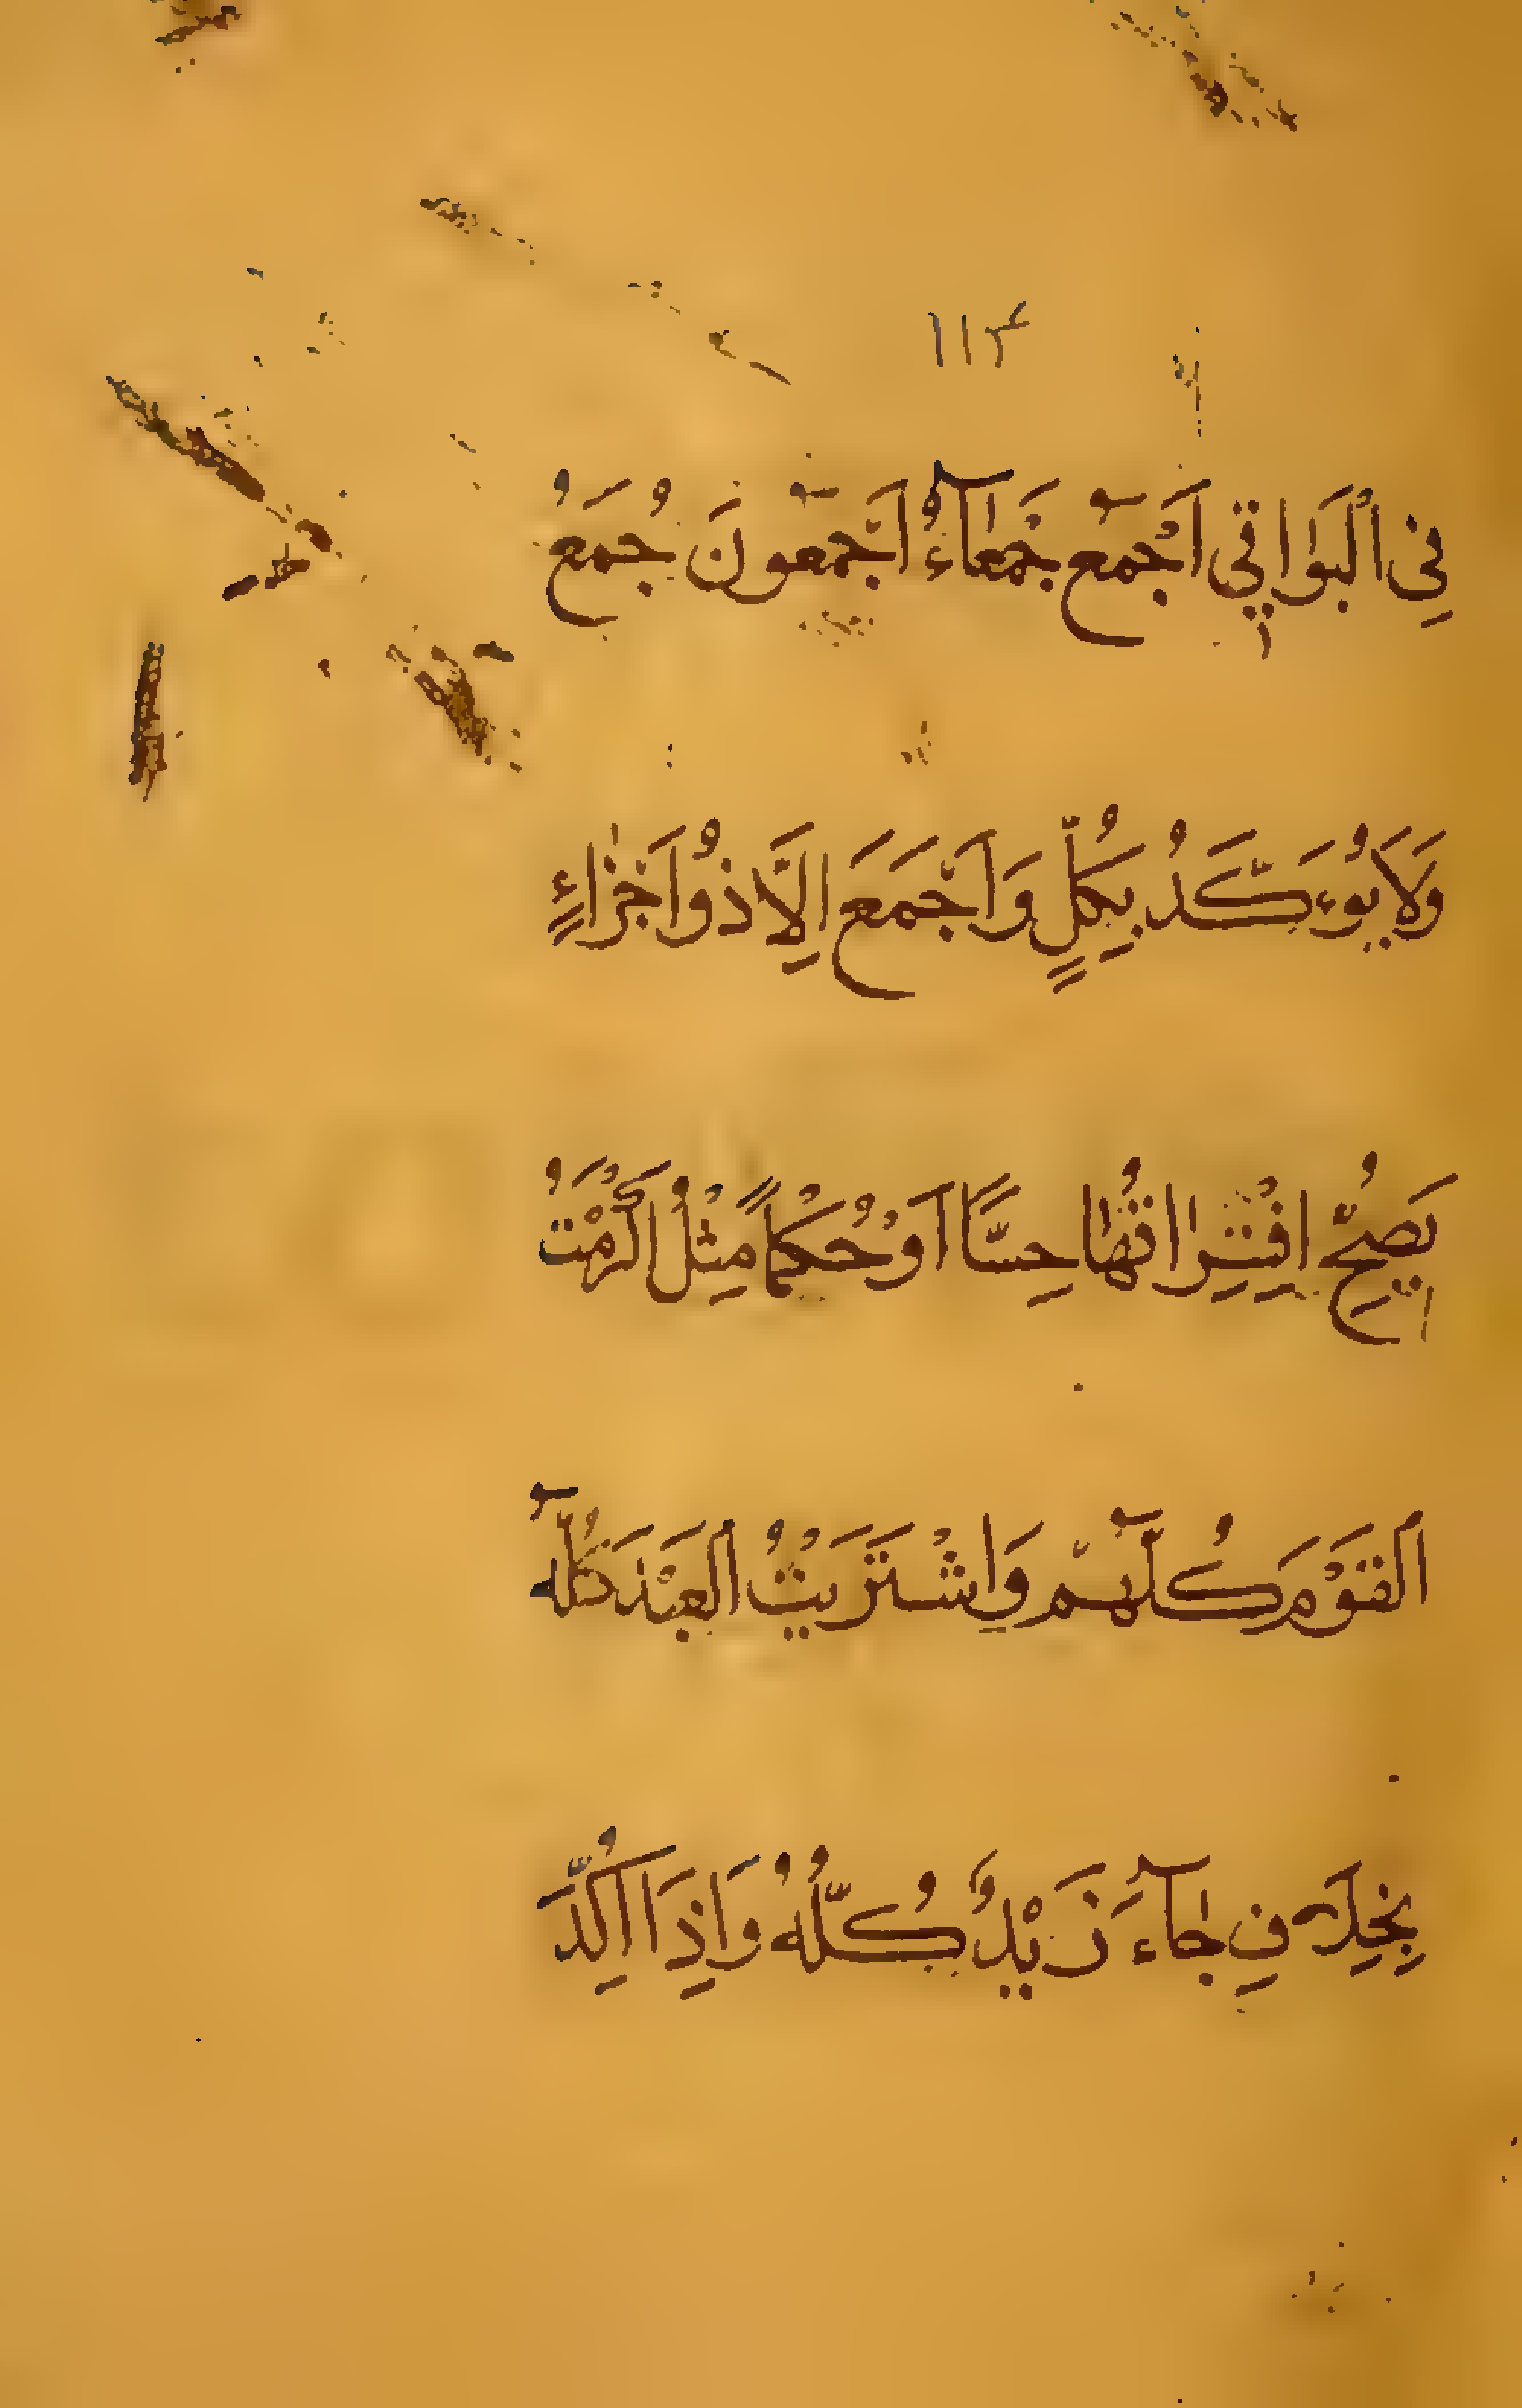 ١١٣
نِى الْبَوَاقِي اَجْمَع جَمْعَآءُ اَجْمَعُونَ جُمَعُ
وَلَا يُوءَكَّدُ بِكُلٍّ وَاَجْمَعَ اِلَّا ذُواَجْزَاءٍ
يَصِحُّ اِفْتِرَاقُهَا حِسًّا اَوْ حُكْمًا مِثْلُ اَكْرَمْتُ
اَلْقَوْمَ كُلَّهُمْ وَاِشْتَرَيْتُ الْعَبْدَ كُلَّهُ
بِخِلَافِ جَآءَ زَيْدٌ كُلُّهُ وَاِذَا اُكِّدَ